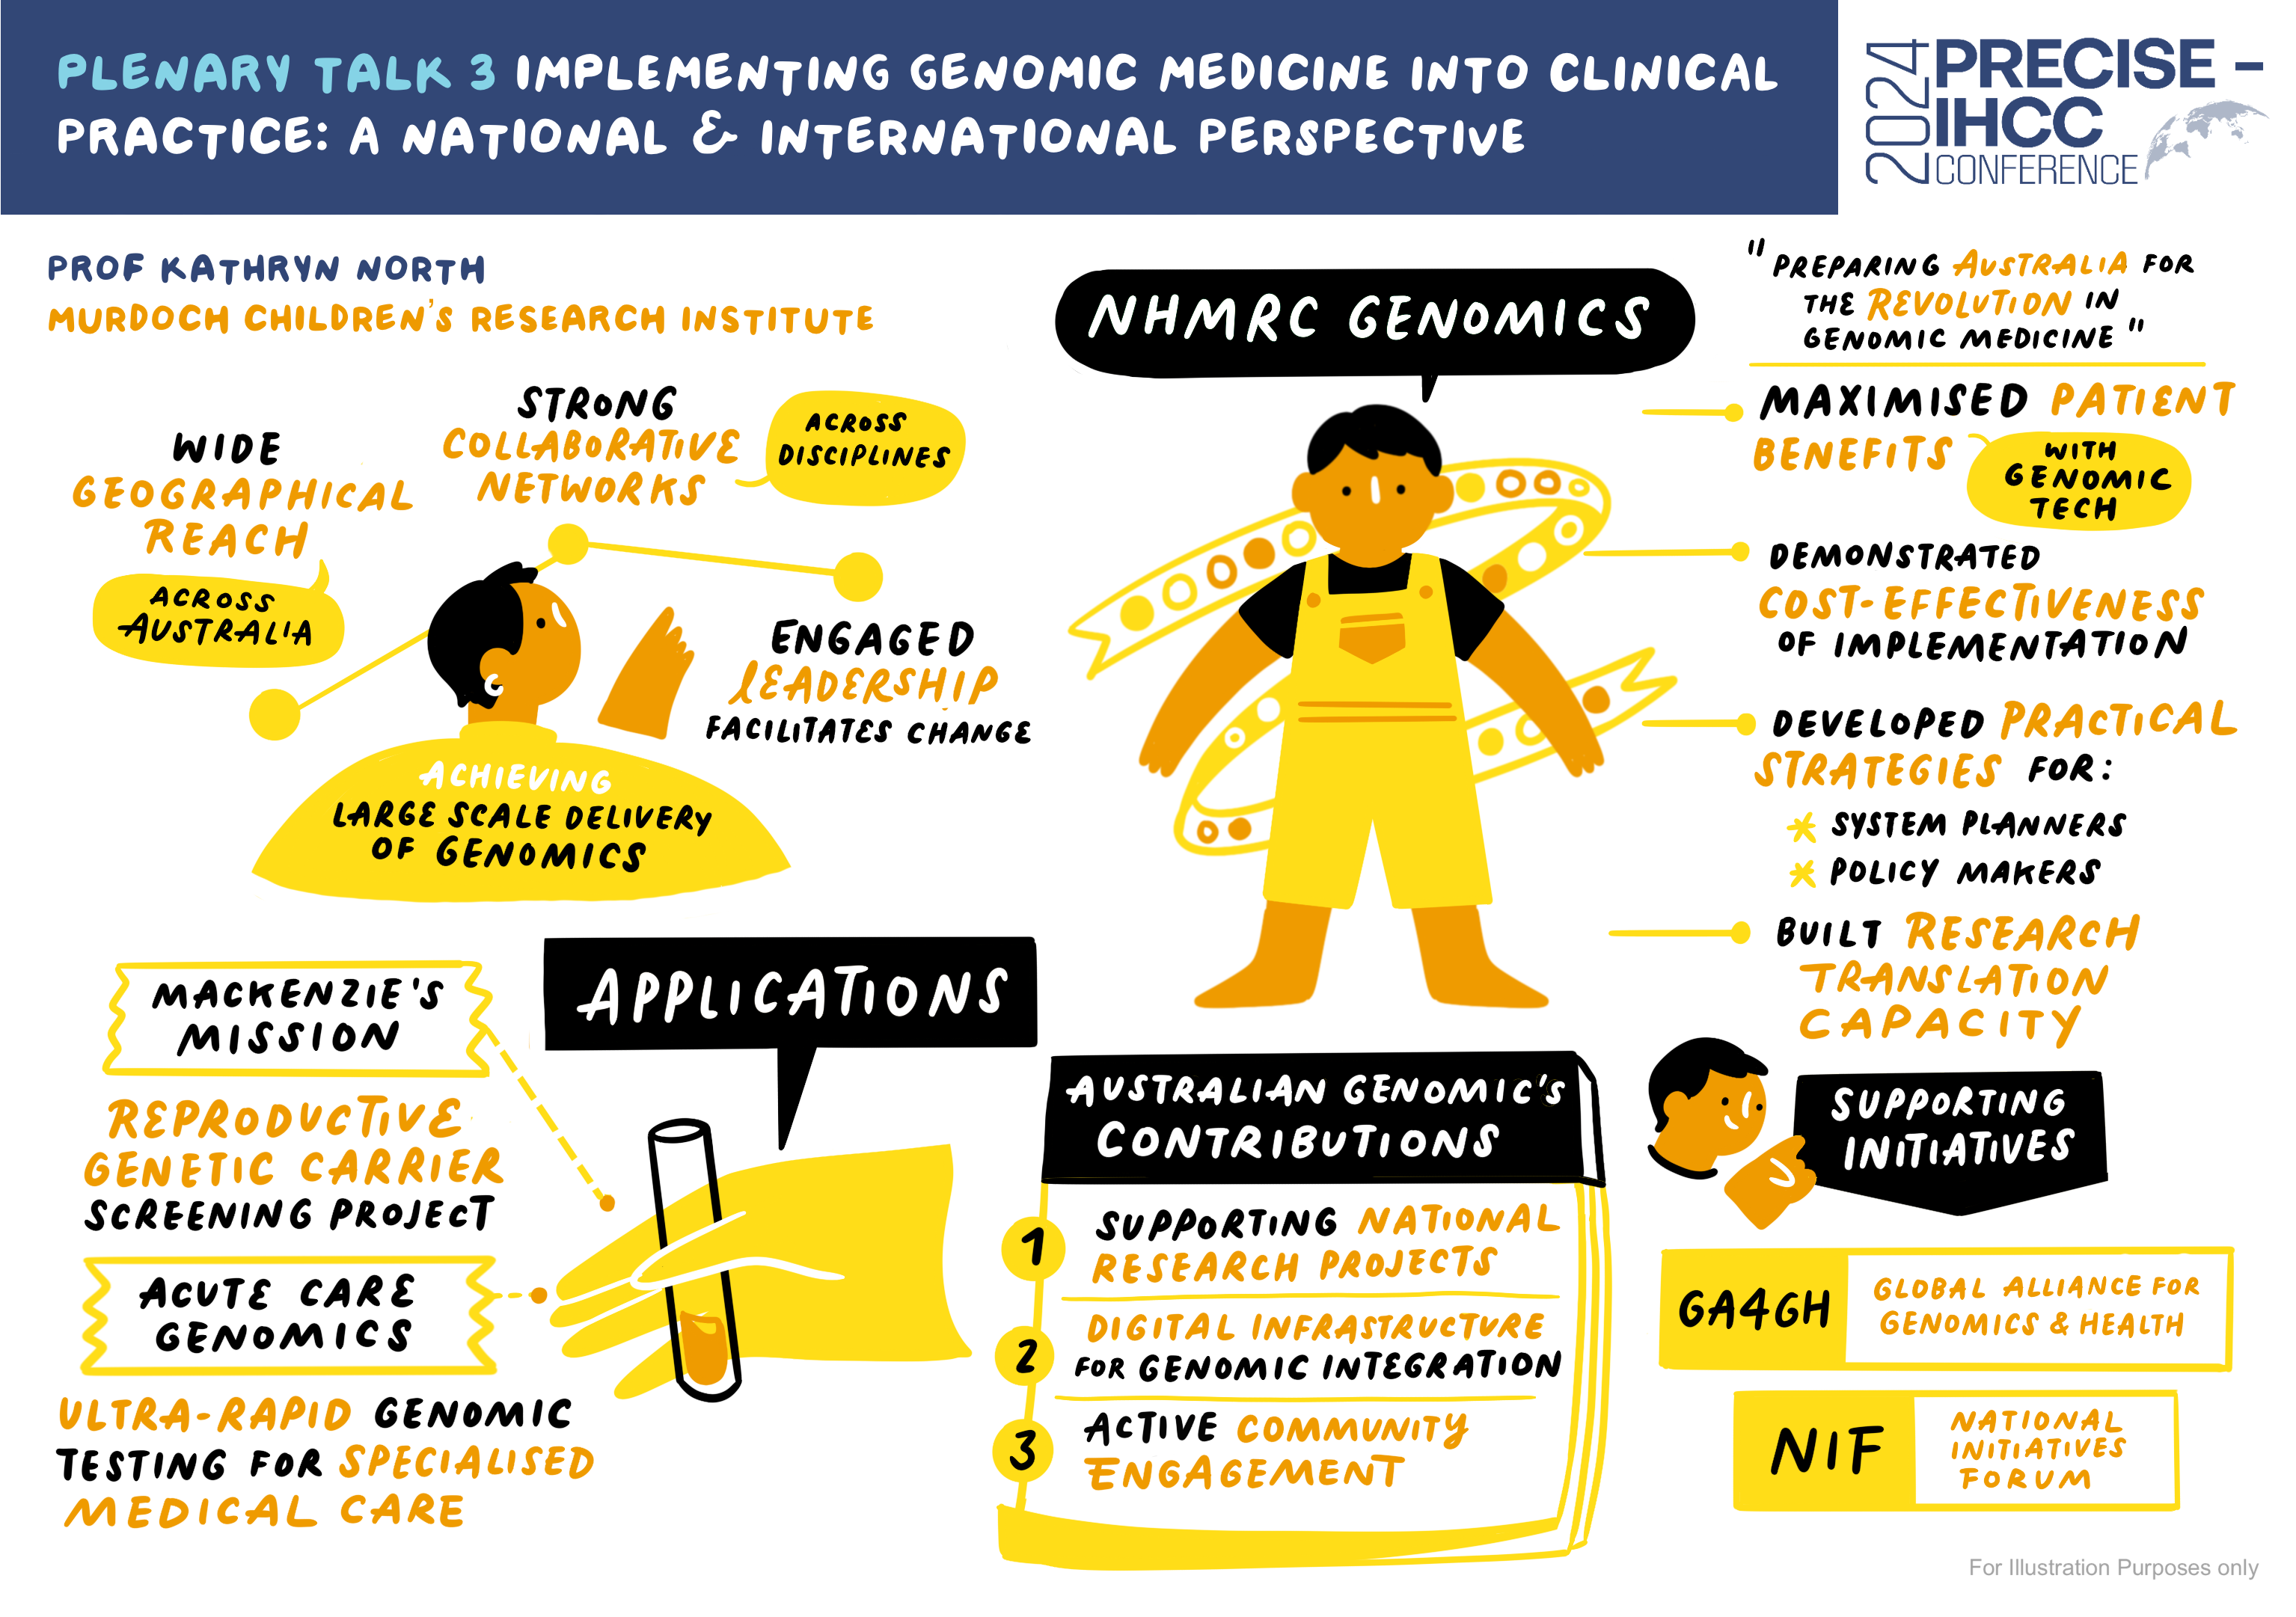 PLENARY TALK 3 IMPLEMENTING GENOMIC MEDICINE INTO CLINICAL
PRACTICE: A NATIONAL & INTERNATIONAL PERSPECTIVE
2024
PRECISE -
IHCC
CONFERENCE
PROF KATHRYN NORTH
MURDOCH CHILDREN'S RESEARCH INSTITUTE
WIDE
GEOGRAPHICAL
REACH
ACROSS
AUSTRALIA
STRONG
COLLABORATIVE
NETWORKS
ACROSS
DISCIPLINES
ENGAGED
LEADERSHIP
FACILITATES CHANGE
ACHIEVING
LARGE SCALE DELIVERY
OF GENOMICS
NHMRC GENOMICS
"PREPARING AUSTRALIA FOR
THE REVOLUTION IN
GENOMIC MEDICINE"
MAXIMISED PATIENT
BENEFITS
WITH
GENOMIC
TECH
DEMONSTRATED
COST-EFFECTIVENESS
OF IMPLEMENTATION
DEVELOPED PRACTICAL
STRATEGIES FOR:
* SYSTEM PLANNERS
* POLICY MAKERS
BUILT RESEARCH
TRANSLATION
CAPACITY
APPLICATIONS
MACKENZIE'S
MISSION
REPRODUCTIVE
GENETIC CARRIER
SCREENING PROJECT
ACUTE CARE
GENOMICS
ULTRA-RAPID GENOMIC
TESTING FOR SPECIALISED
MEDICAL CARE
AUSTRALIAN GENOMIC'S
CONTRIBUTIONS
1 SUPPORTING NATIONAL
RESEARCH PROJECTS
2 DIGITAL INFRASTRUCTURE
FOR GENOMIC INTEGRATION
3 ACTIVE COMMUNITY
ENGAGEMENT
SUPPORTING
INITIATIVES
GA4GH
GLOBAL ALLIANCE FOR
GENOMICS & HEALTH
NIF
NATIONAL
INITIATIVES
FORUM
For Illustration Purposes only